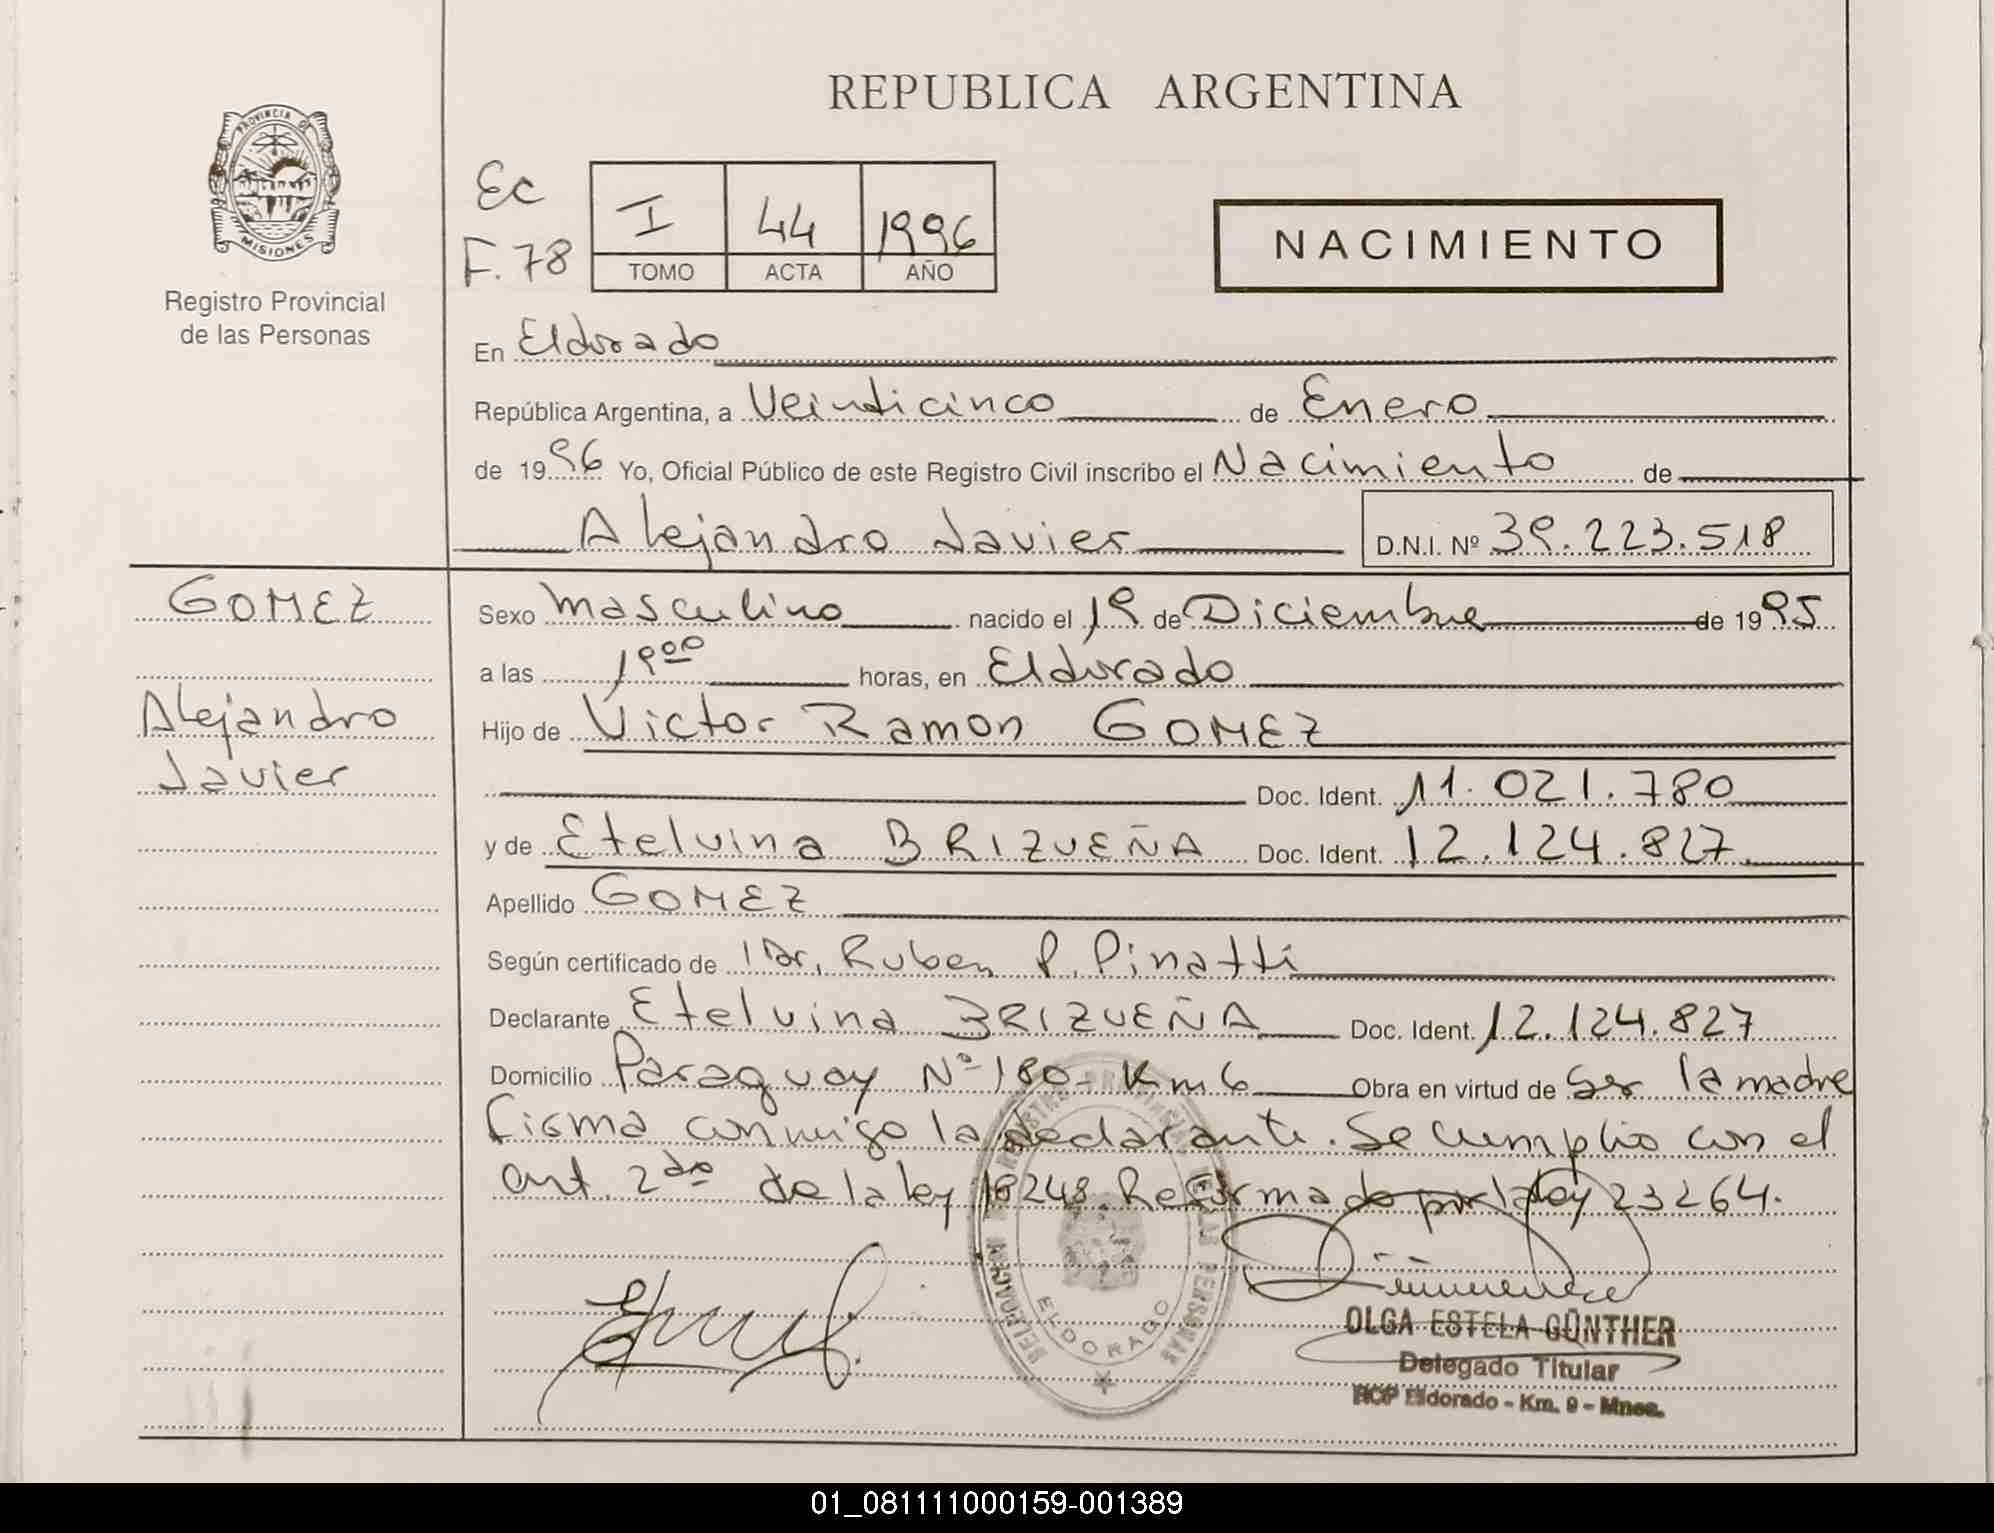 REPUBLICA ARGENTINA
PROVINCIA DE
MISIONES
Registro Provincial
de las Personas
Ec
F. 78
I 44 1996
TOMO ACTA AÑO
NACIMIENTO
En Eldorado
República Argentina, a Veinticinco de Enero
de 1996 Yo, Oficial Público de este Registro Civil inscribo el Nacimiento de
Alejandro Javier D.N.I. Nº 39.223.518
GOMEZ
Alejandro
Javier
Sexo Masculino nacido el 19 de Diciembre de 1995
a las 19 00 horas, en Eldorado
Hijo de Victor Ramon GOMEZ
Doc. Ident. 11.021.780
y de Etelvina BRIZUEÑA Doc. Ident. 12.124.827
Apellido GOMEZ
Según certificado de Dr. Ruben P. Pinatti
Declarante Etelvina BRIZUEÑA Doc. Ident. 12.124.827
Domicilio Paraguay Nº 180 - Km 6 Obra en virtud de Ser la madre
firma conmigo la declarante. Se cumplio con el
art. 2do de la ley 18248 Reformado por la ley 23264.
DELEGACION REGISTRO PROVINCIAL DE LAS PERSONAS
ELDORADO
OLGA ESTELA GÜNTHER
Delegado Titular
RCP Eldorado - Km. 9 - Mnes.
01_081111000159-001389